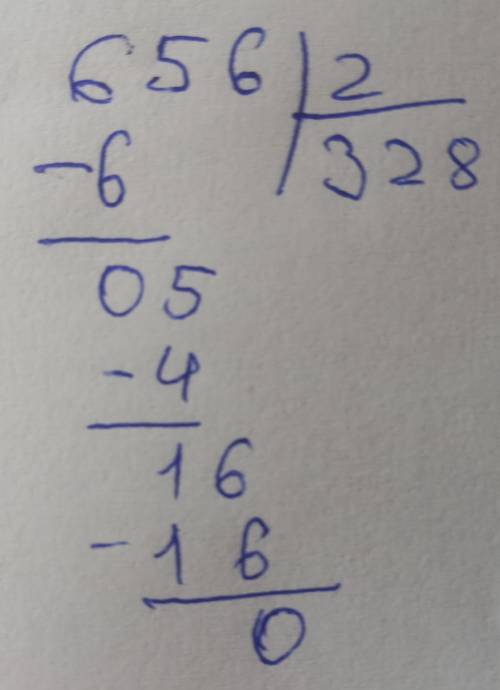 656 2
-6 328
05
-4
16
-16
0